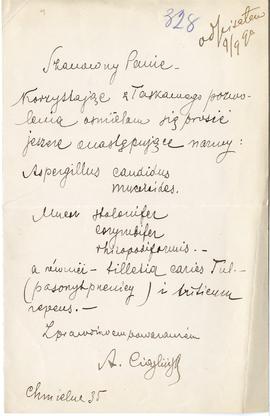 328
odpisałem
9/9 98
Szanowny Panie -
Korzystając z Łaskawego pozwo-
lenia ośmielam się prosić
jeszcze następujące nazwy:
Aspergillus candidus
mucoroides.
Mucor stolonifer
corymbifer
rhizopodiformis. -
a również - tilletia caries Tul -
(pasorzyt pszenicy) i triticum
repens. -
Z prawdziwem poważaniem
A.
Chmielna 35